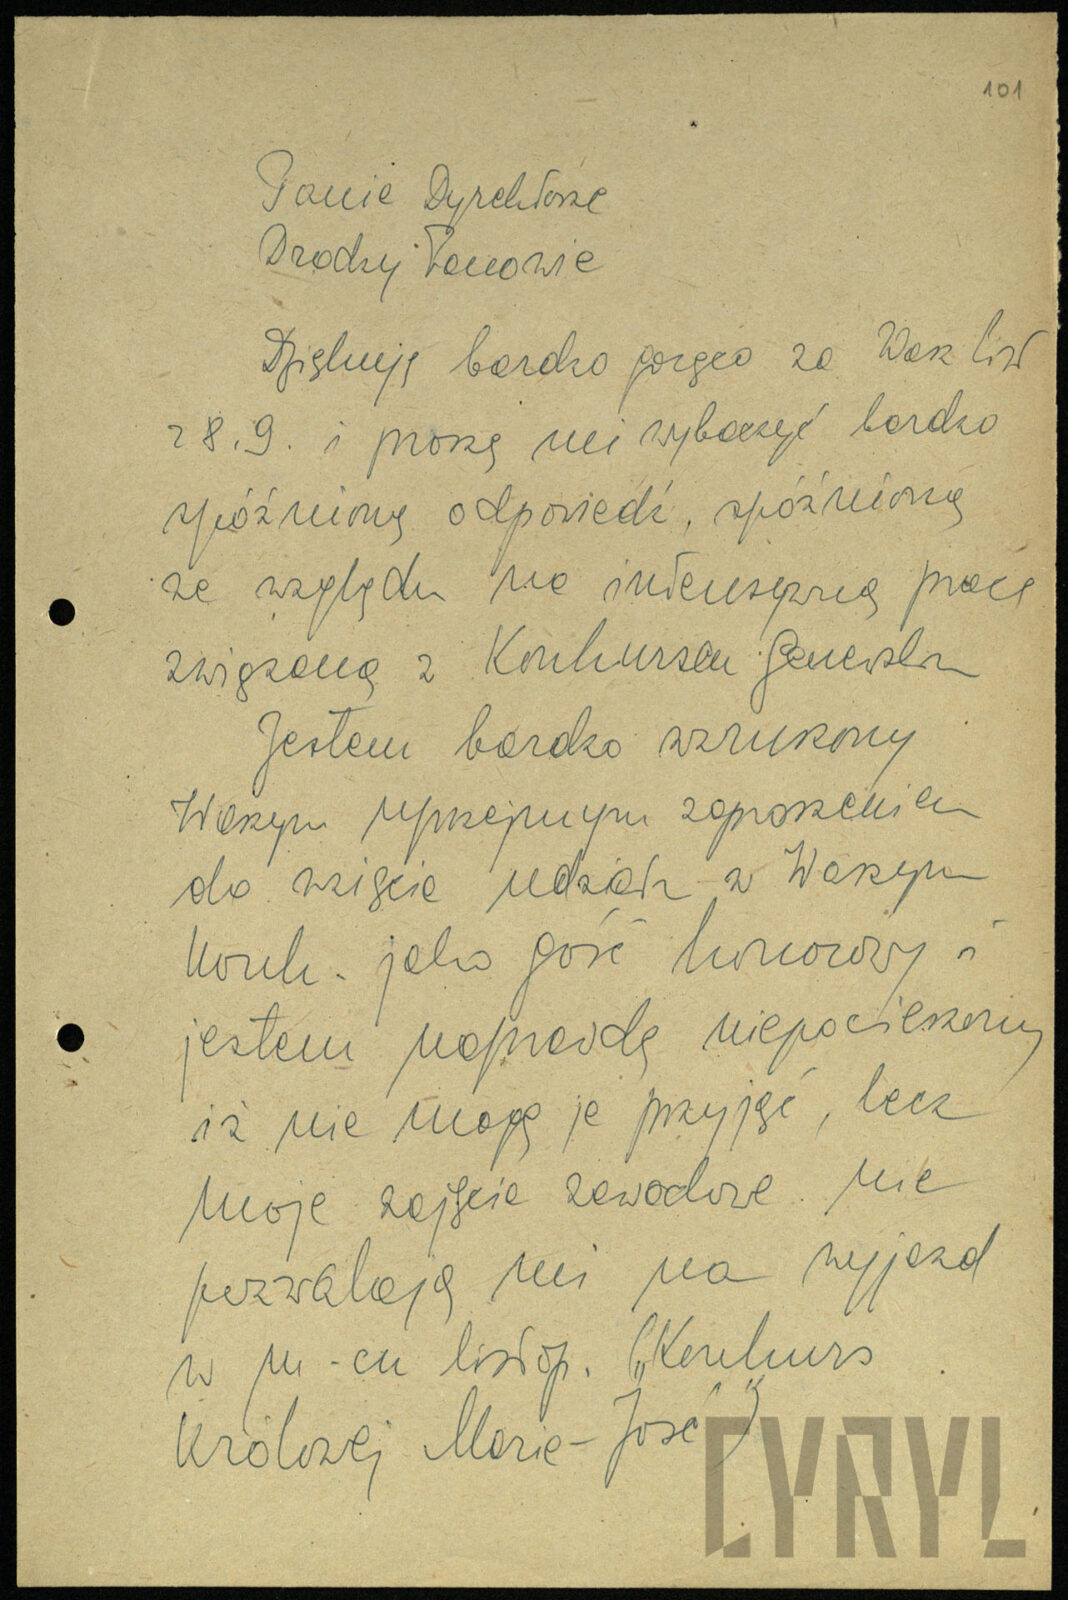 101
Panie Dyrektorze
Drodzy Panowie
Dziękuję bardzo gorąco za Wasz list
z 8.9. i proszę mi wybaczyć bardzo
spóźnioną odpowiedź, spóźnioną
ze względu na intensywną pracę
związaną z Konkursem Genewskim
Jestem bardzo wzruszony
Waszym uprzejmym zaproszeniem
do wzięcia udziału w Waszym
Konk. jako gość honorowy i
jestem naprawdę niepocieszony
iż nie mogę je przyjąć, lecz
moje zajęcia zawodowe nie
pozwalają mi na wyjazd
w m-cu listop. („Konkurs
Królowej Marie-José”)
CYRYL